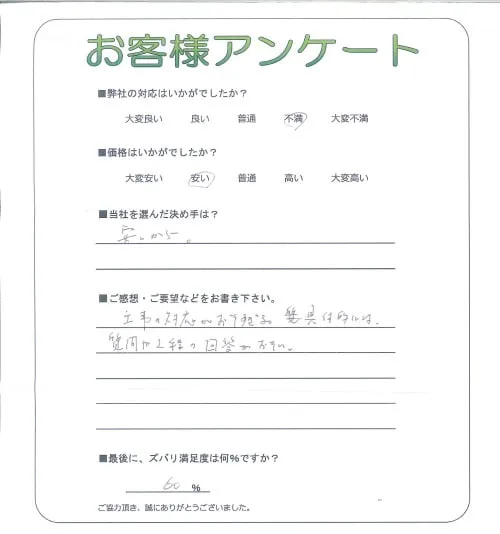 お客様アンケート
■弊社の対応はいかがでしたか？
大変良い 良い 普通 不満 大変不満
■価格はいかがでしたか？
大変安い 安い 普通 高い 大変高い
■当社を選んだ決め手は？
安いから。
■ご感想・ご要望などをお書き下さい。
工事の対応がおそすぎる
質問 の回答がおそい。
■最後に、ズバリ満足度は何%ですか？
60 %
ご協力頂き、誠にありがとうございました。